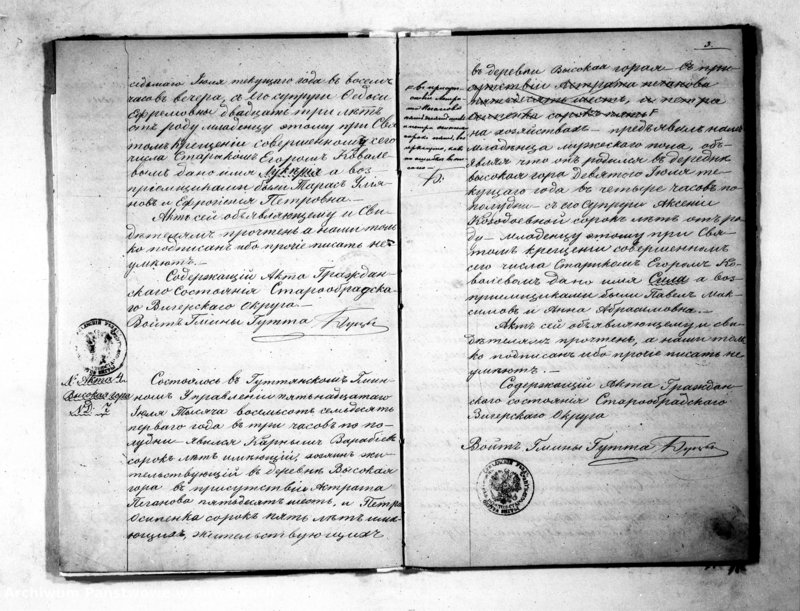 седьмаго Іюля текущаго года въ восемь
часовъ вечера, съ его супруги Ѳедоси
Ефремовны двадцать три лѣтъ
отъ роду младенцу этому при Свя
томъ крещеніи совершенному сего
числа Старикомъ Егоромъ Ковале
вымъ дано имя а вос
пріемщиками были Тарасъ Улія
новъ и Ефросинія Петровна.—
Актъ сей объявляющему и Сви
дѣтелямъ прочтенъ а нами толь
ко подписанъ ибо прочіе писать не
умѣютъ.—
Содержащій Акта Граждан
скаго Состоянія Старообрядска
го Вигерскаго Округа—
Войтъ Гмины Гутта
№ Акта 4.
Высокая гора
Состоялось въ Гуттянскомъ Гмин
номъ Управленіи пятьнадцатаго
Іюля тысяча восемьсотъ семьдесятъ
перваго года въ три часовъ по по
лудни явился Карнемъ Варабьевъ
сорокъ лѣтъ имѣющій, хозяинъ жи
тельствующій въ деревнѣ Высокая
гора въ присутствіи Астрата
Поганова пятьдесятъ шесть, и Петра
Осипенка сорокъ пять лѣтъ имѣ
ющихъ, жительствующихъ
3.
въ деревни Высокая горахъ въ при
сутствіи Астрата Поганова
пятьдесятъ шесть, и петра
Осипенка сорокъ пять
на хозяйствахъ— предъявилъ намъ
младенца мужескаго пола, объ
являя что онъ родился въ деревнѣ
высокая гора девятаго Іюля те
кущаго года въ четыре часовъ по
полудни— съ его Супруги Аксеніи
сорокъ лѣтъ отъ ро
ду— младенцу этому при Свя
томъ крещеніи совершенномъ
сего числа Старикомъ Егоромъ Ко
валевомъ дано имя Сила а вос
пріимщиками были Павелъ Мак
симовъ и Анна Абрасимовна.—
Актъ сей объявляющему и сви
дѣтелямъ прочтенъ, а нами толь
ко подписанъ ибо прочіе писать не
умѣютъ.—
Содержащій Акта Граждан
скаго состоянія Старообрядскаго
Вигерскаго Округа
Войтъ Гмины Гутта
Archiwum Państwowe w Suwałkach